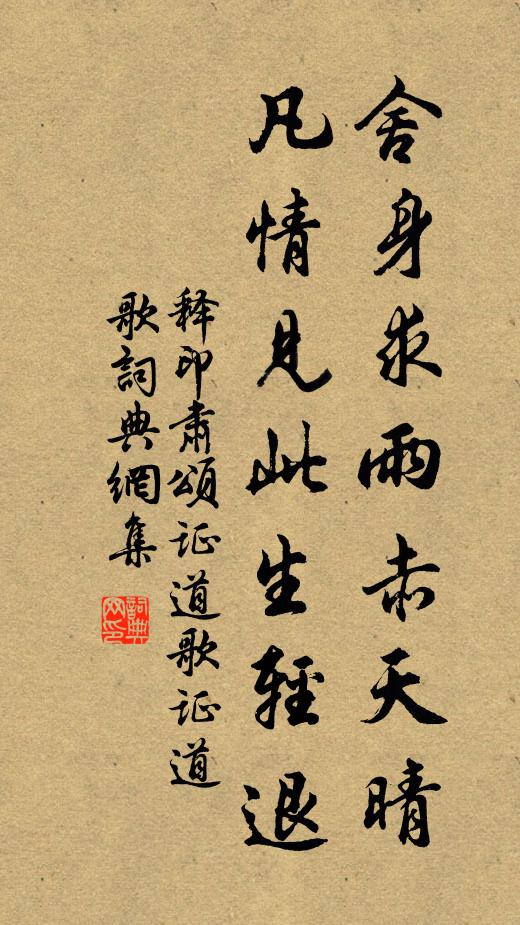 舍身求雨赤天晴
凡情見此生輕退
释印肃頌证道歌证道
歌詞典網集
詞典
网印